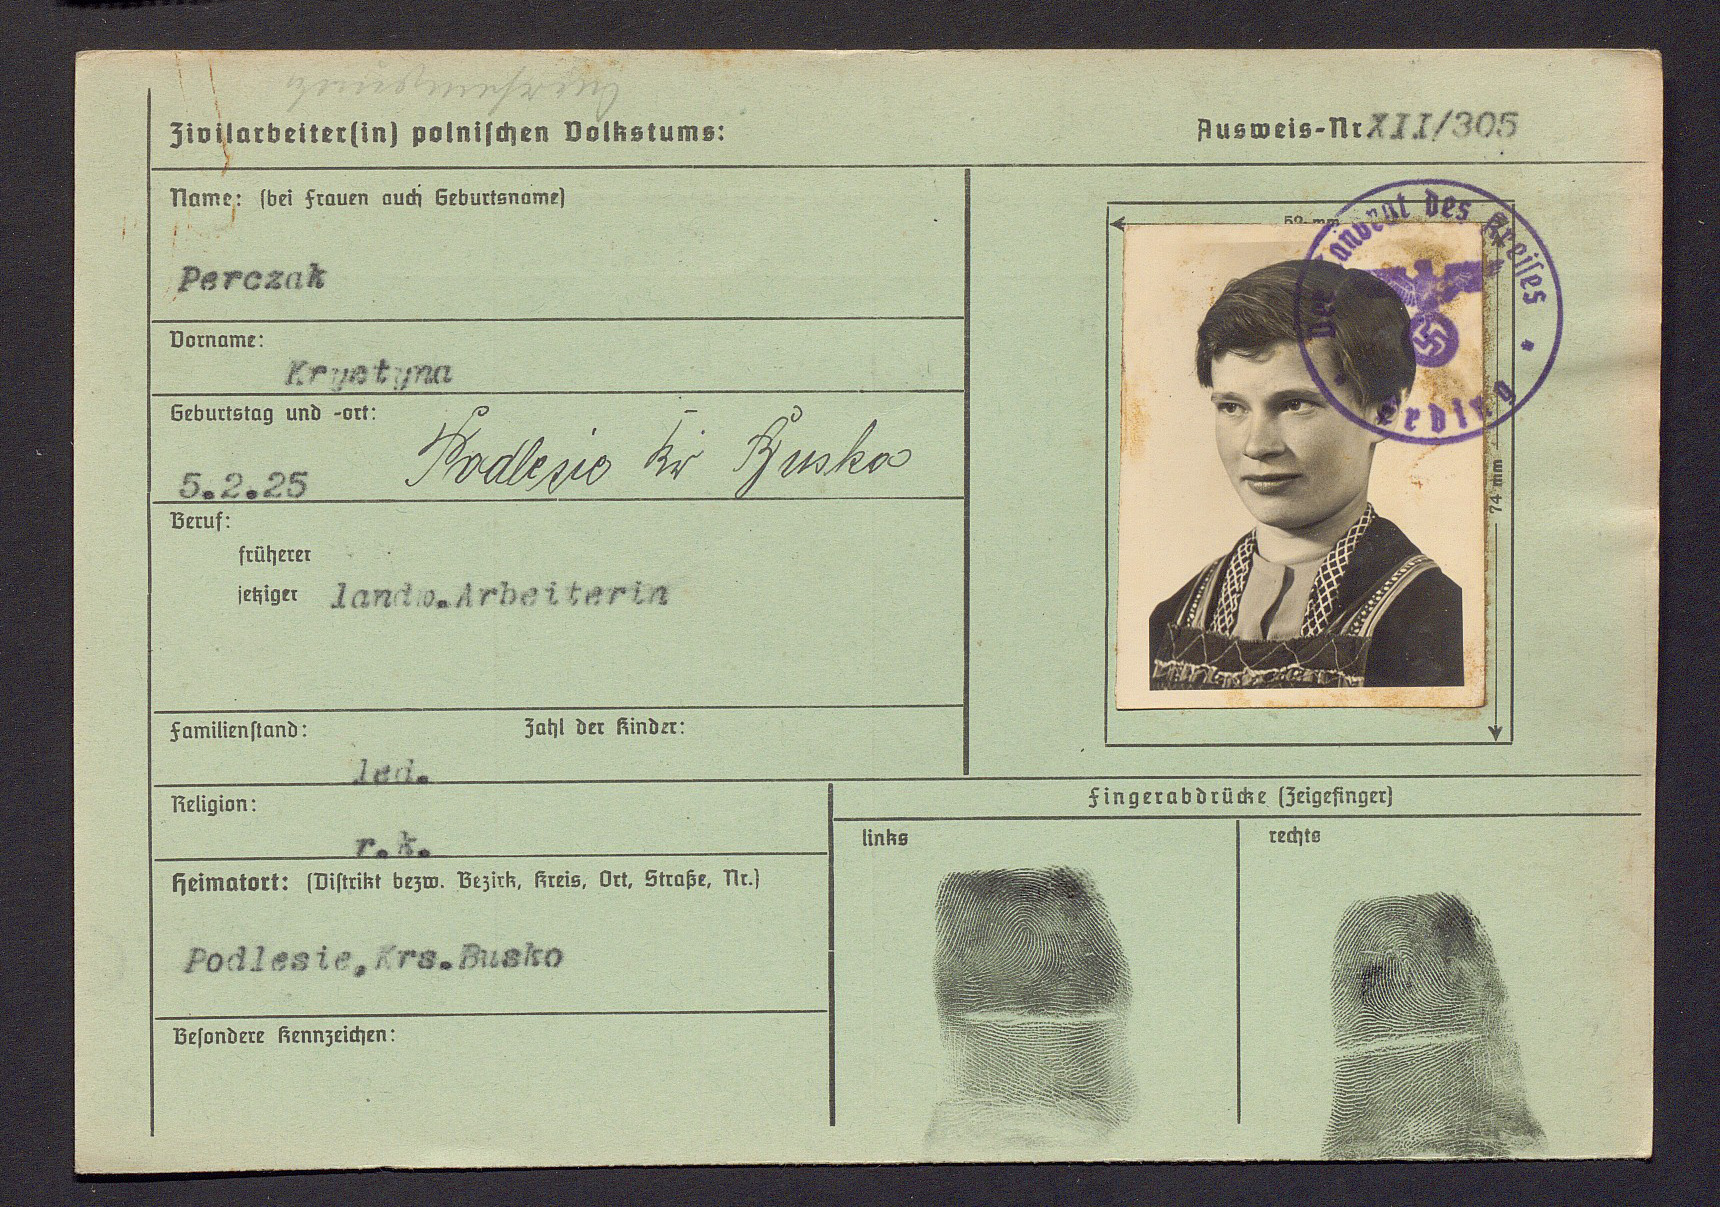 Zivilarbeiter(in) polnischen Volkstums:
Ausweis-Nr XII/305
Name: (bei Frauen auch Geburtsname)
Perczak
Vorname:
Krystyna
Geburtstag und -ort:
5.2.25 Podlesie Kr Busko
Beruf:
früherer
jetziger landw.Arbeiterin
Familienstand: Zahl der Kinder:
led.
Religion:
r.k.
Heimatort: (Distrikt bezw. Bezirk, Kreis, Ort, Straße, Nr.)
Podlesie,Krs.Busko
Besondere Kennzeichen:
52 mm
74 mm
Der Landrat des Kreises
Erding
Fingerabdrücke (Zeigefinger)
links
rechts